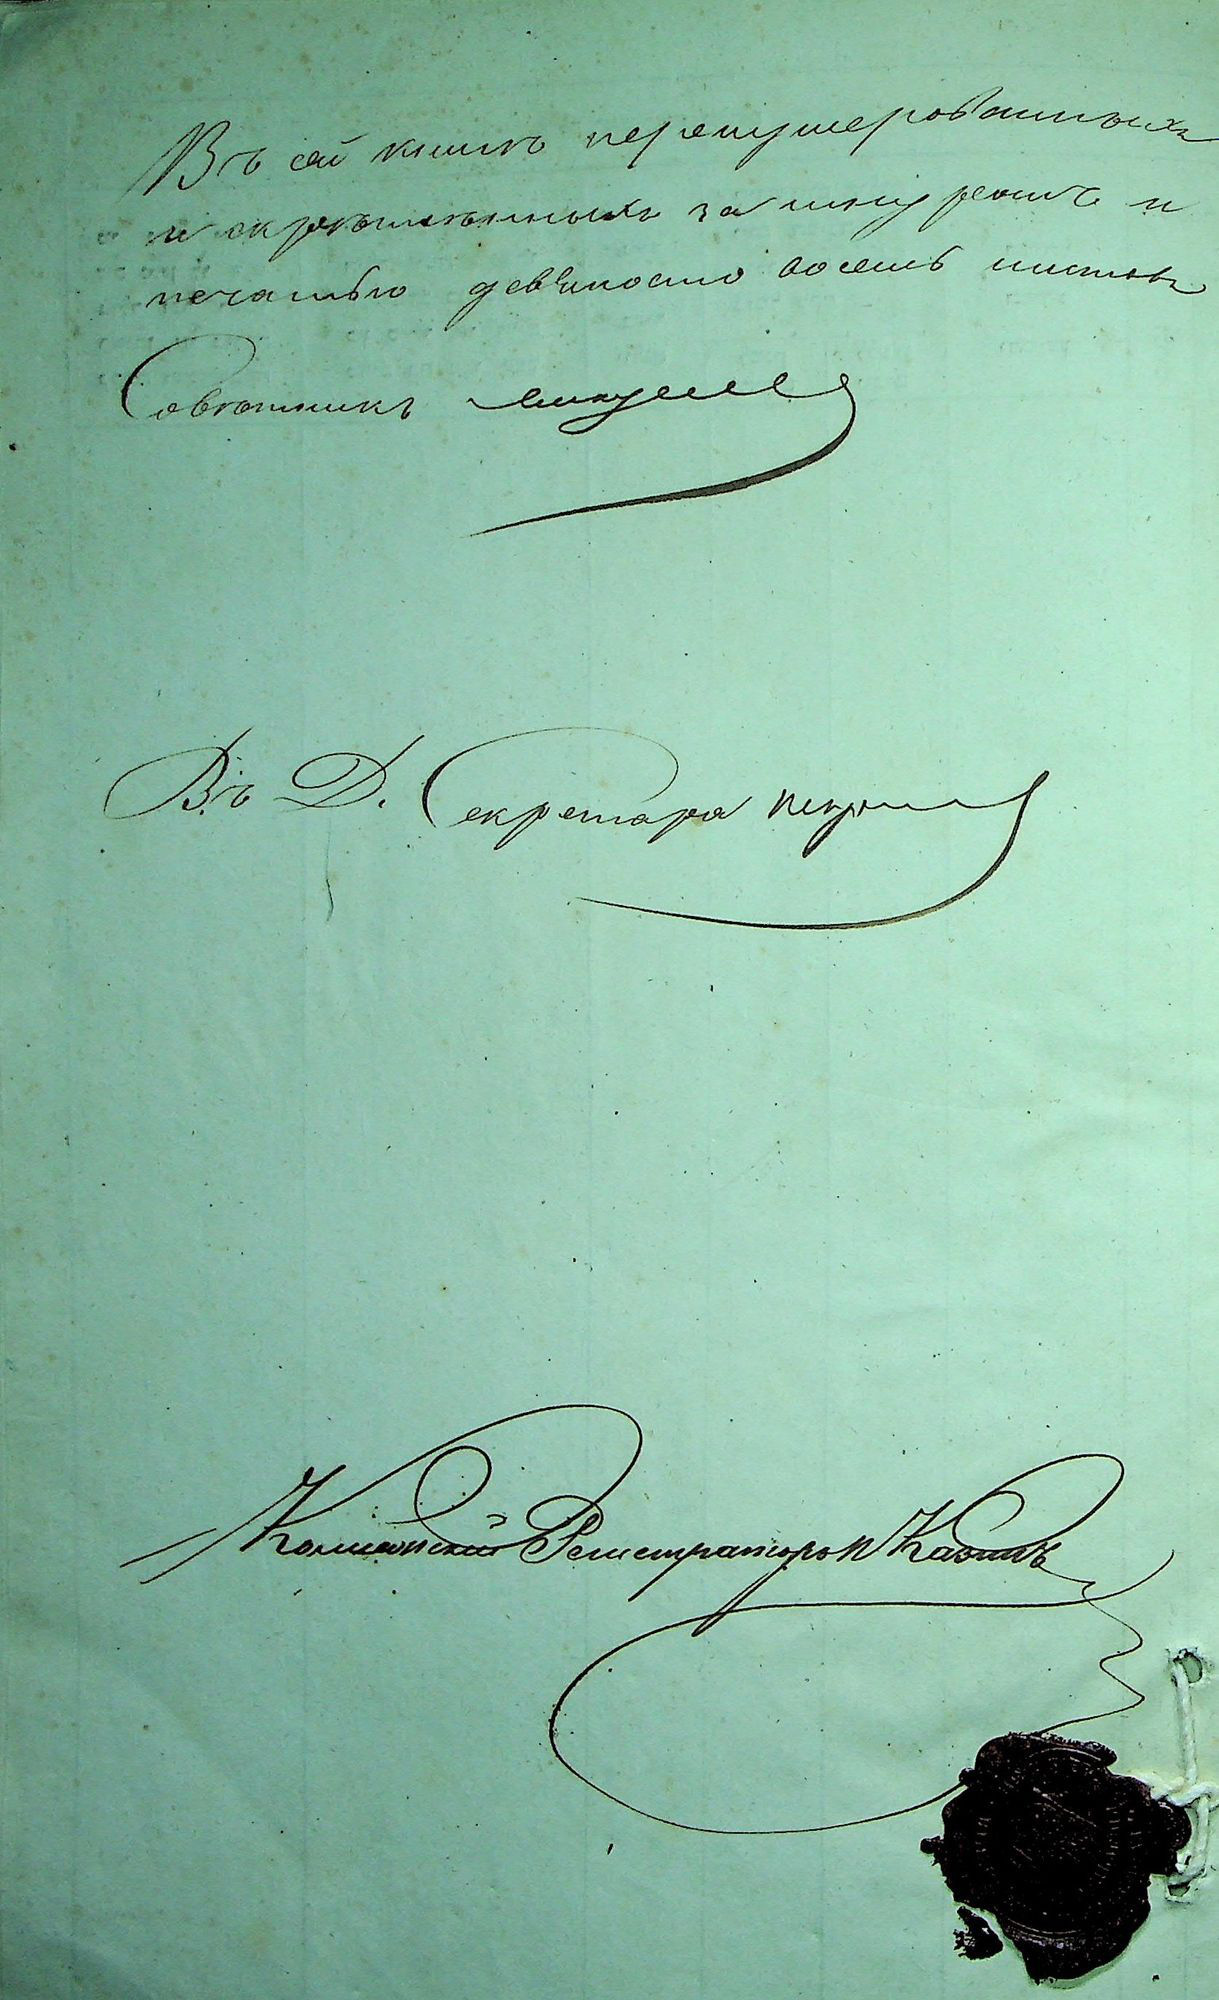 Въ сей книгѣ перенумерованныхъ
и скрѣпленныхъ за шнуромъ и
печатью девяносто восемь листовъ
Совѣтникъ
Въ Д. Секретаря
Коллежскій Регистраторъ